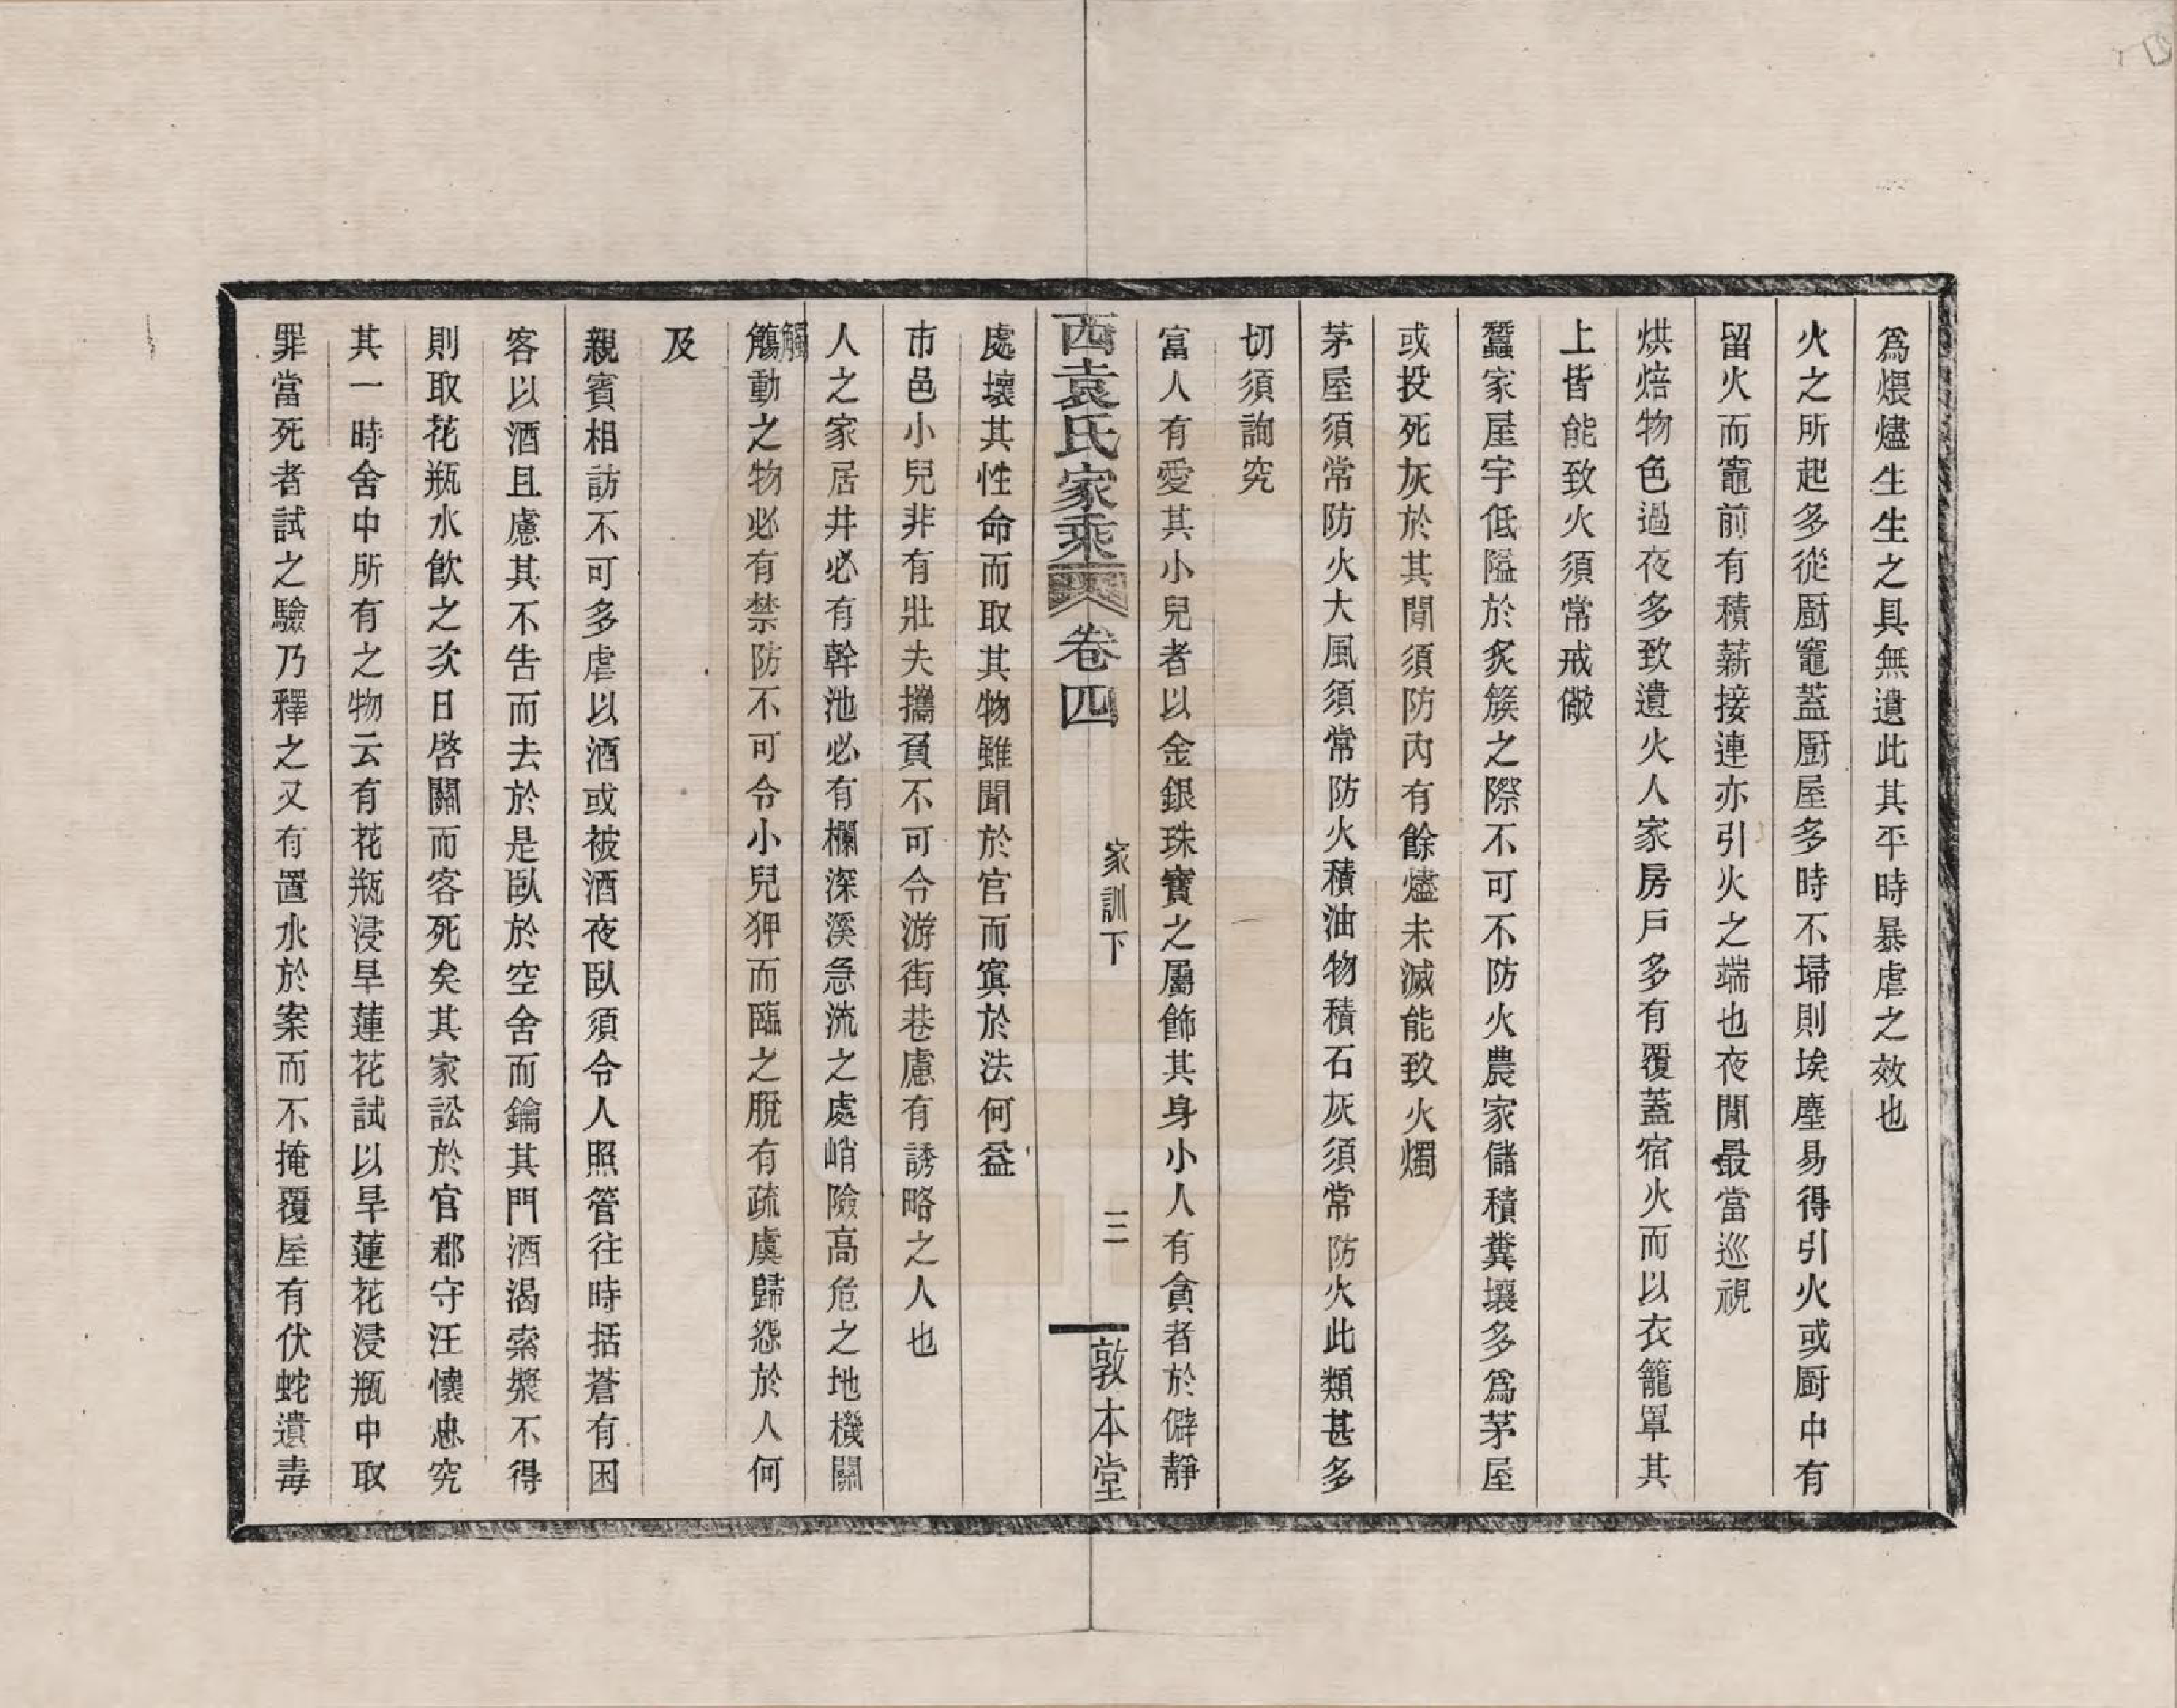 爲煨燼生生之具無遺此其平時暴虐之效也
火之所起多從厨竈蓋厨屋多時不埽則埃塵易得引火或厨中有
留火而竈前有積薪接連亦引火之端也夜閒最當巡視
烘焙物色過夜多致遺火人家房戶多有覆蓋宿火而以衣籠罩其
上皆能致火須常戒儆
蠶家屋宇低隘於炙簇之際不可不防火農家儲積糞壤多爲茅屋
或投死灰於其閒須防內有餘燼未滅能致火燭
茅屋須常防火大風須常防火積油物積石灰須常防火此類甚多
切須詢究
富人有愛其小兒者以金銀珠寶之屬飾其身小人有貪者於僻靜
西袁氏家乘
卷四
家訓下
三
敦本堂
處壞其性命而取其物雖聞於官而寘於法何益
市邑小兒非有壯夫攜負不可令游街巷慮有誘略之人也
人之家居井必有幹池必有欄深溪急流之處峭險高危之地機關
觸
觴動之物必有禁防不可令小兒狎而臨之脫有疏虞歸怨於人何
及
親賓相訪不可多虐以酒或被酒夜臥須令人照管往時括蒼有困
客以酒且慮其不告而去於是臥於空舍而鑰其門酒渴索漿不得
則取花瓶水飲之次日啓關而客死矣其家訟於官郡守汪懷忠究
其一時舍中所有之物云有花瓶浸旱蓮花試以旱蓮花浸瓶中取
罪當死者試之驗乃釋之又有置水於案而不掩覆屋有伏蛇遺毒